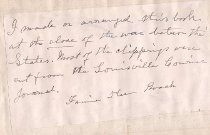 I made or arranged this book
at the close of the war between the
States. Most of the clippings were
cut from the Louisville Courier
Journal.
Fannie